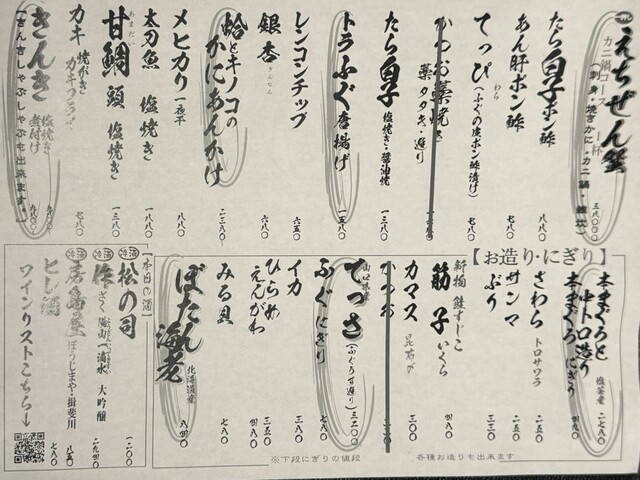 えちぜん蟹
カニ鍋コース 一杯
(刺身・焼きかに・カニ鍋・雑炊)
三八〇〇〇
たら白子ポン酢
八八〇
あん肝ポン酢
七八〇
てっぴ(ふぐの皮ポン酢漬け)
七八〇
かつお藁焼き
わら
藁タタキ・造り
たら白子 塩焼き・醤油焼
一三八〇
トラふぐ唐揚げ
一五八〇
レンコンチップ
六五〇
銀杏
ぎんなん
六八〇
蛤とキノコの
かにあんかけ
二三八〇
メヒカリ 一夜干
八八〇
太刀魚 塩焼き
一八八〇
甘鯛 頭 塩焼き
あまだい
一三八〇
カキ 焼がき
カキフライ
七八〇
きんき 塩焼き
煮付け
(きんきしゃぶしゃぶも出来ます。)
九八〇〇
【お造り・にぎり】
本まぐろと
中トロ造り 塩釜産
二七八〇
本まぐろにぎり
さわら トロサワラ
サンマ
ぶり
新物 鮭すじこ
筋子 いくら
カマス 昆布〆
かつお
山口県産
てっさ(ふぐ刺身造り)
三二〇〇
ふぐにぎり
七八〇
イカ
ひらめ
えんがわ
みる貝
七八〇
ぼたん海老 北海道産
八四〇
※下段にぎりの値段
各種お造りも出来ます
【本日の酒】
冷酒 松の司
一二〇〇
冷酒 作 ざく 陽山一滴水 大吟醸
二九四〇
冷酒 房島屋 ぼうじまや・揖斐川
八五〇
ヒレ酒
七八〇
ワインリストこちら↓